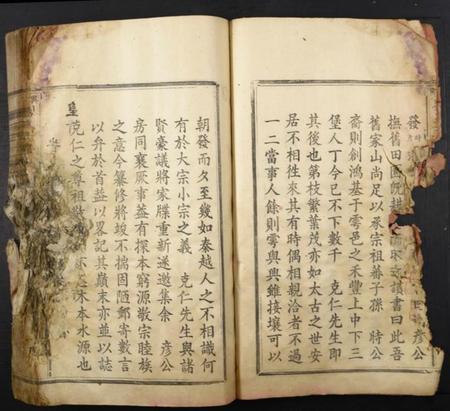 發
撫舊田園既耕 讀書曰此吾
舊家山尚足以承宗祖善子孫 時公
裔則創鴻基于雩邑之禾豐上中下三
堡人丁今已不下數千 克仁先生即
其後也第枝繁葉茂亦如太古之世安
居不相徃來其有時偶相親洽者不過
一二當事人餘則雩與興雖接壤可以
朝發而夕至幾如秦越人之不相識何
有於大宗小宗之義 克仁先生與諸
賢豪議將家牒重新遂邀集余 彥公
房同襄厥事蓋有探本窮源敬宗睦族
之意今纂修將竣不揣固陋郵寄數言
以弁於首蓋以畧記其巔末亦並以誌
克仁之尊祖 本水源也
皇